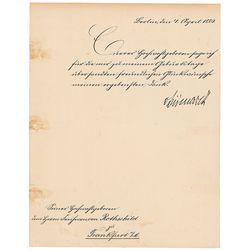 Berlin, den 4. April 1893
Euerer Hochwohlgeboren sage ich
für die mir zu meinem Geburtstage
übersandten freundlichen Glückwünsche
meinen verbindlichsten Dank.
v Bismarck
Seiner Hochwohlgeboren
dem Herrn Freiherrn von Rothschild
Frankfurt